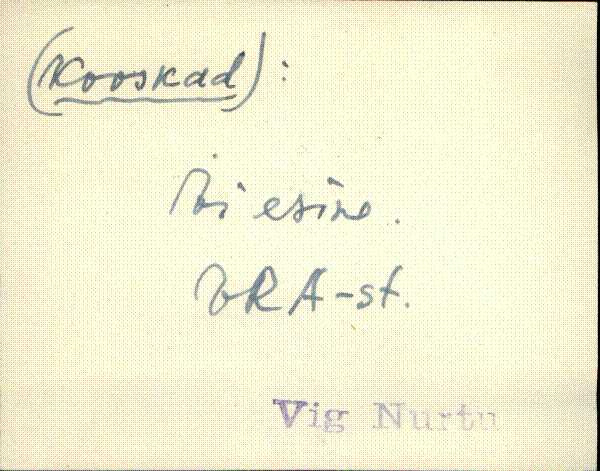 (Kooskad):
Ei esine.
ERA-st.
Vig Nurtu